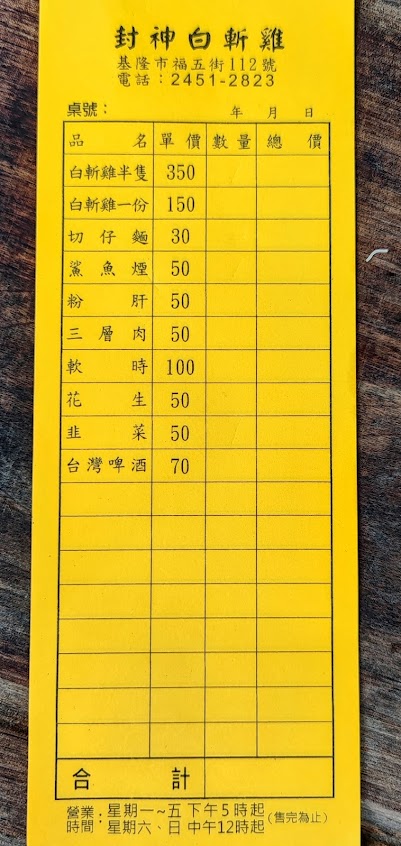 封神白斬雞
基隆市福五街112號
電話：2451-2823
桌號： 年 月 日
品名 單價 數量 總價
白斬雞半隻 350
白斬雞一份 150
切仔麵 30
鯊魚煙 50
粉肝 50
三層肉 50
軟時 100
花生 50
韭菜 50
台灣啤酒 70
合計
營業時間：星期一~五 下午5時起
星期六、日 中午12時起 (售完為止)